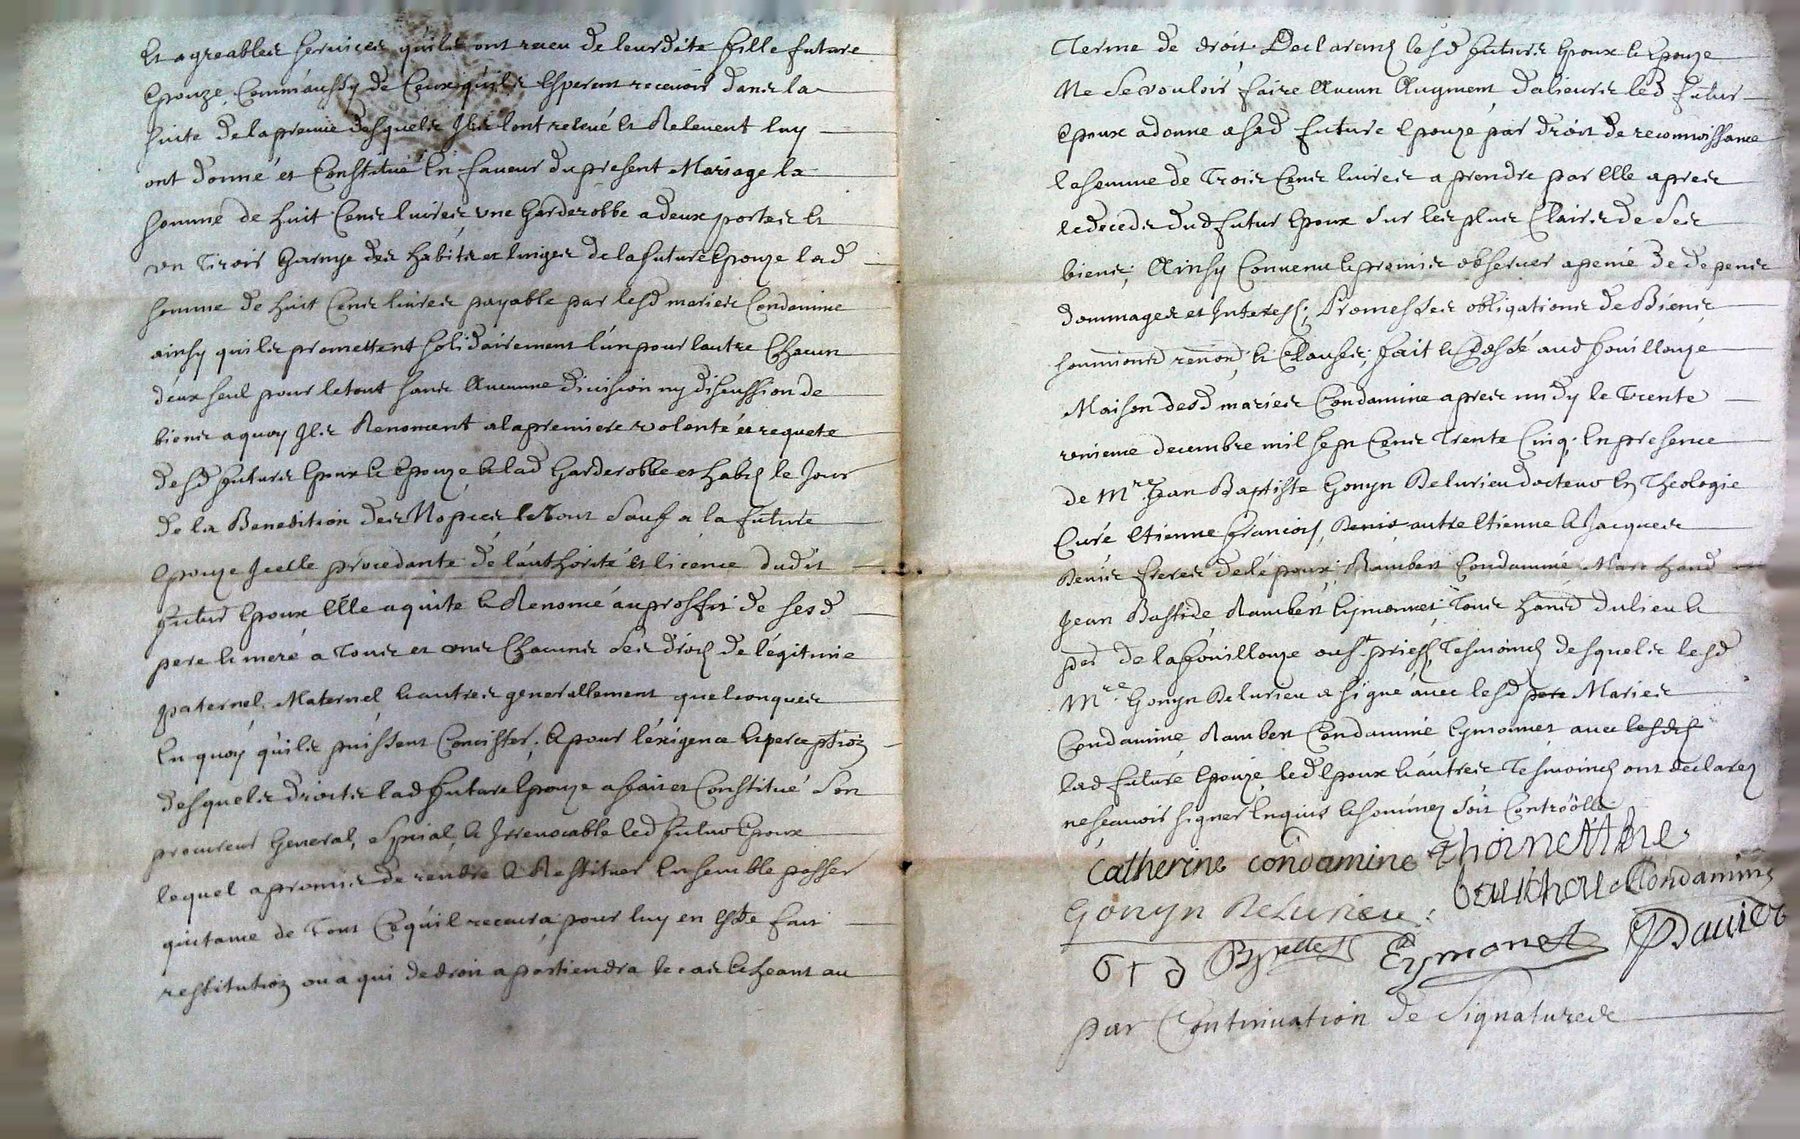 et agreables services quils ont receu de leurdite fille future
Epouze, Comm'aussy de Ceux quils Esperent recevoir dans la
suite de la preuve desquels Ils l'ont relevé et Relevent luy
ont donné et Constitué En faveur du present Mariage la
somme de huit Cens livres, une Garderobbe a deux portes et
un Tiroir Garnye des habits et linges de la future Epouze lad
somme de huit Cens livres payable par lesd mariés Condamine
ainsy quils promettent solidairement l'un pour lautre Chacun
d'eux seul pour le tout sans Aucunne division ny discussion de
biens a quoy Ils Renoncent a la premiere volonté et requete
desd futurs Epoux et Epouze, et lad Garderobbe et habis le Jour
de la Benedition des Nopces le tout sauf a la future
Epouze Icelle procedante de l'authorité et licence dudit
futur Epoux Elle a quitté et Renoncé au proffit de sesd
pere et mere a Tous et uns Chacuns ses droits de légitime
paternel, Maternel, et autres generallement quelconques
En quoy quils puissent Concister, Et pour l'éxigence et perception
desquels droits lad future Epouze a fait et Constitué Son
procureur General, Special, et Irrevocable led futur Epoux
lequel a promis de rendre et Restituer Ensemble passer
quitance de Tout Ce quil recevra pour luy en Estre fait
restitution ou a qui de droit apartiendra le cas Echeant au
Terme de droit. Declarant lesd futurs Epoux et Epouze
Ne Se vouloir faire Aucun Augment, dalieurs led futur
Epoux a donné a sad future Epouze par droit de reconnoissance
la somme de Trois Cens livres a prendre par Elle apres
le deceds dud futur Epoux Sur les plus Clairs de Ses
biens; Ainsy Convenu et promis observer a peine de depens
dommages et Interests; Promesses obligations de Biens
soumions renon et Clauses; fait et passé aud fouillouze
Maison desd mariés Condamine apres midy le Trente
unieme decembre mil sept Cens Trente Cinq; En presence
de Mre Jean Baptiste Gonyn Delurieu docteur En Theologie
Curé Etienne François, Denis autre Etienne et Jacques
Denis freres de l'époux; Rambert Condamine Marchand
Jean Bastide, Rambert Eymonnet Tous hants du lieu et
par de la fouillouze Tesmoins desquels lesd
Mre Gonyn Delurieu a signé avec lesd pere Mariés
Condamine, Rambert Condamine Eymonnet avec lesdits
lad future Epouze, led Epoux et autres Tesmoins ont declaré
ne sçavoir signer Enquis et sommés Soit Controollé
Catherine Condamine
Condamine
Gonyn Delurieu
Eymonet
par Continuation de Signatures